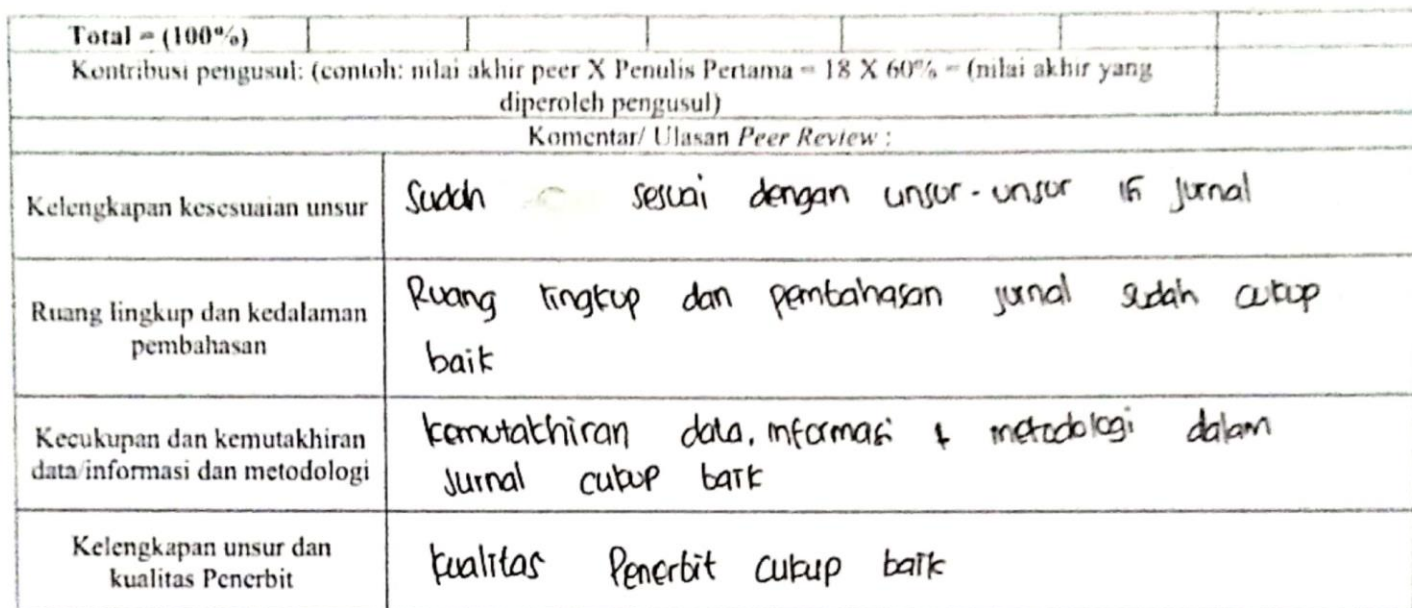 Total = (100%)
Kontribusi pengusul: (contoh: nilai akhir peer X Penulis Pertama = 18 X 60% = (nilai akhir yang
diperoleh pengusul)
Komentar/ Ulasan Peer Review :
Kelengkapan kesesuaian unsur
Sudah sesuai dengan unsur-unsur jurnal
Ruang lingkup dan kedalaman
pembahasan
Ruang lingkup dan pembahasan jurnal sudah cukup
baik
Kecukupan dan kemutakhiran
data/informasi dan metodologi
kemutakhiran data, informasi & metodologi dalam
Jurnal cukup baik
Kelengkapan unsur dan
kualitas Penerbit
kualitas Penerbit cukup baik